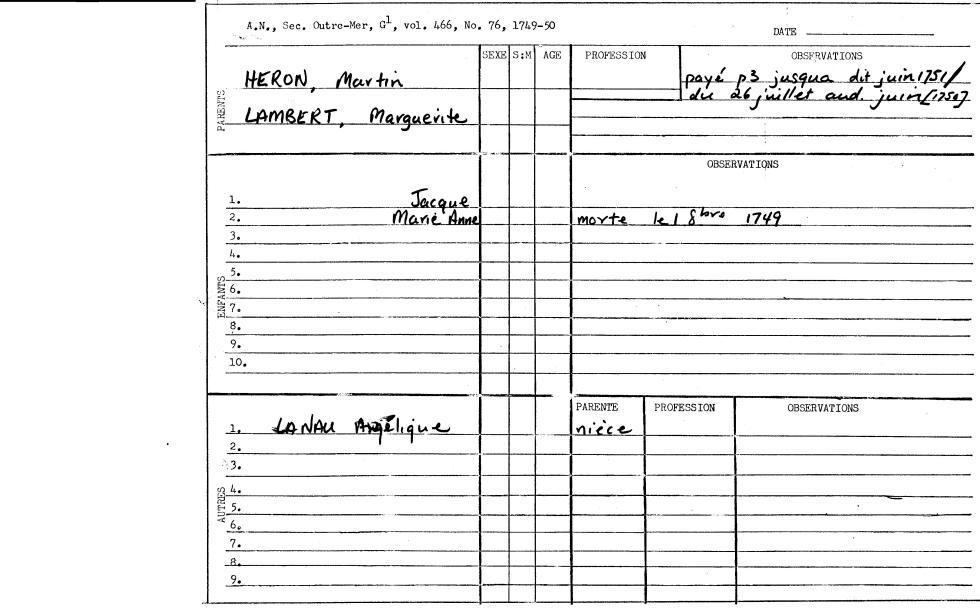 A.N., Sec. Outre-Mer, G1, vol. 466, No. 76, 1749-50
DATE
SEXE S:M AGE PROFESSION OBSERVATIONS
PARENTS
HERON, Martin
payé p3 jusqua dit juin 1751/
du 26 juillet aud. juin [1750]
LAMBERT, Marguerite
OBSERVATIONS
ENFANTS
1. Jacque
2. Marie Anne morte le 1 8bre 1749
3.
4.
5.
6.
7.
8.
9.
10.
PARENTE PROFESSION OBSERVATIONS
AUTRES
1. LANAU Angélique nièce
2.
3.
4.
5.
6.
7.
8.
9.